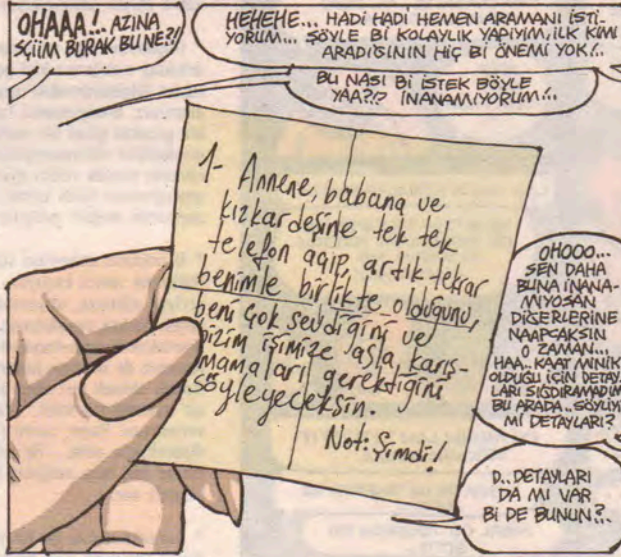 OHAAA!.. AZINA
SÇİİM BURAK BU NE?!
HEHEHE... HADİ HADİ HEMEN ARAMANI İSTİ-
YORUM... ŞÖYLE Bİ KOLAYLIK YAPIYIM, İLK KİMİ
ARADIĞININ HİÇ Bİ ÖNEMİ YOK!..
BU NASI Bİ İSTEK BÖYLE
YAA?!? İNANAMIYORUM!..
1- Annene, babana ve
kızkardeşine tek tek
telefon açıp, artık tekrar
benimle birlikte olduğunu,
beni çok sevdiğini ve
bizim işimize asla karış-
mamaları gerektiğini
söyleyeceksin.
Not: Şimdi!
OHOOO...
SEN DAHA
BUNA İNANA-
MIYOSAN
DİĞERLERİNE
NAAPCAKSIN
O ZAMAN...
HAA.. KAAT MİNİK
OLDUĞU İÇİN DETAY-
LARI SIĞDIRAMADIM
BU ARADA.. SÖYLİYİM
Mİ DETAYLARI?
D.. DETAYLARI
DA MI VAR
Bİ DE BUNUN?..